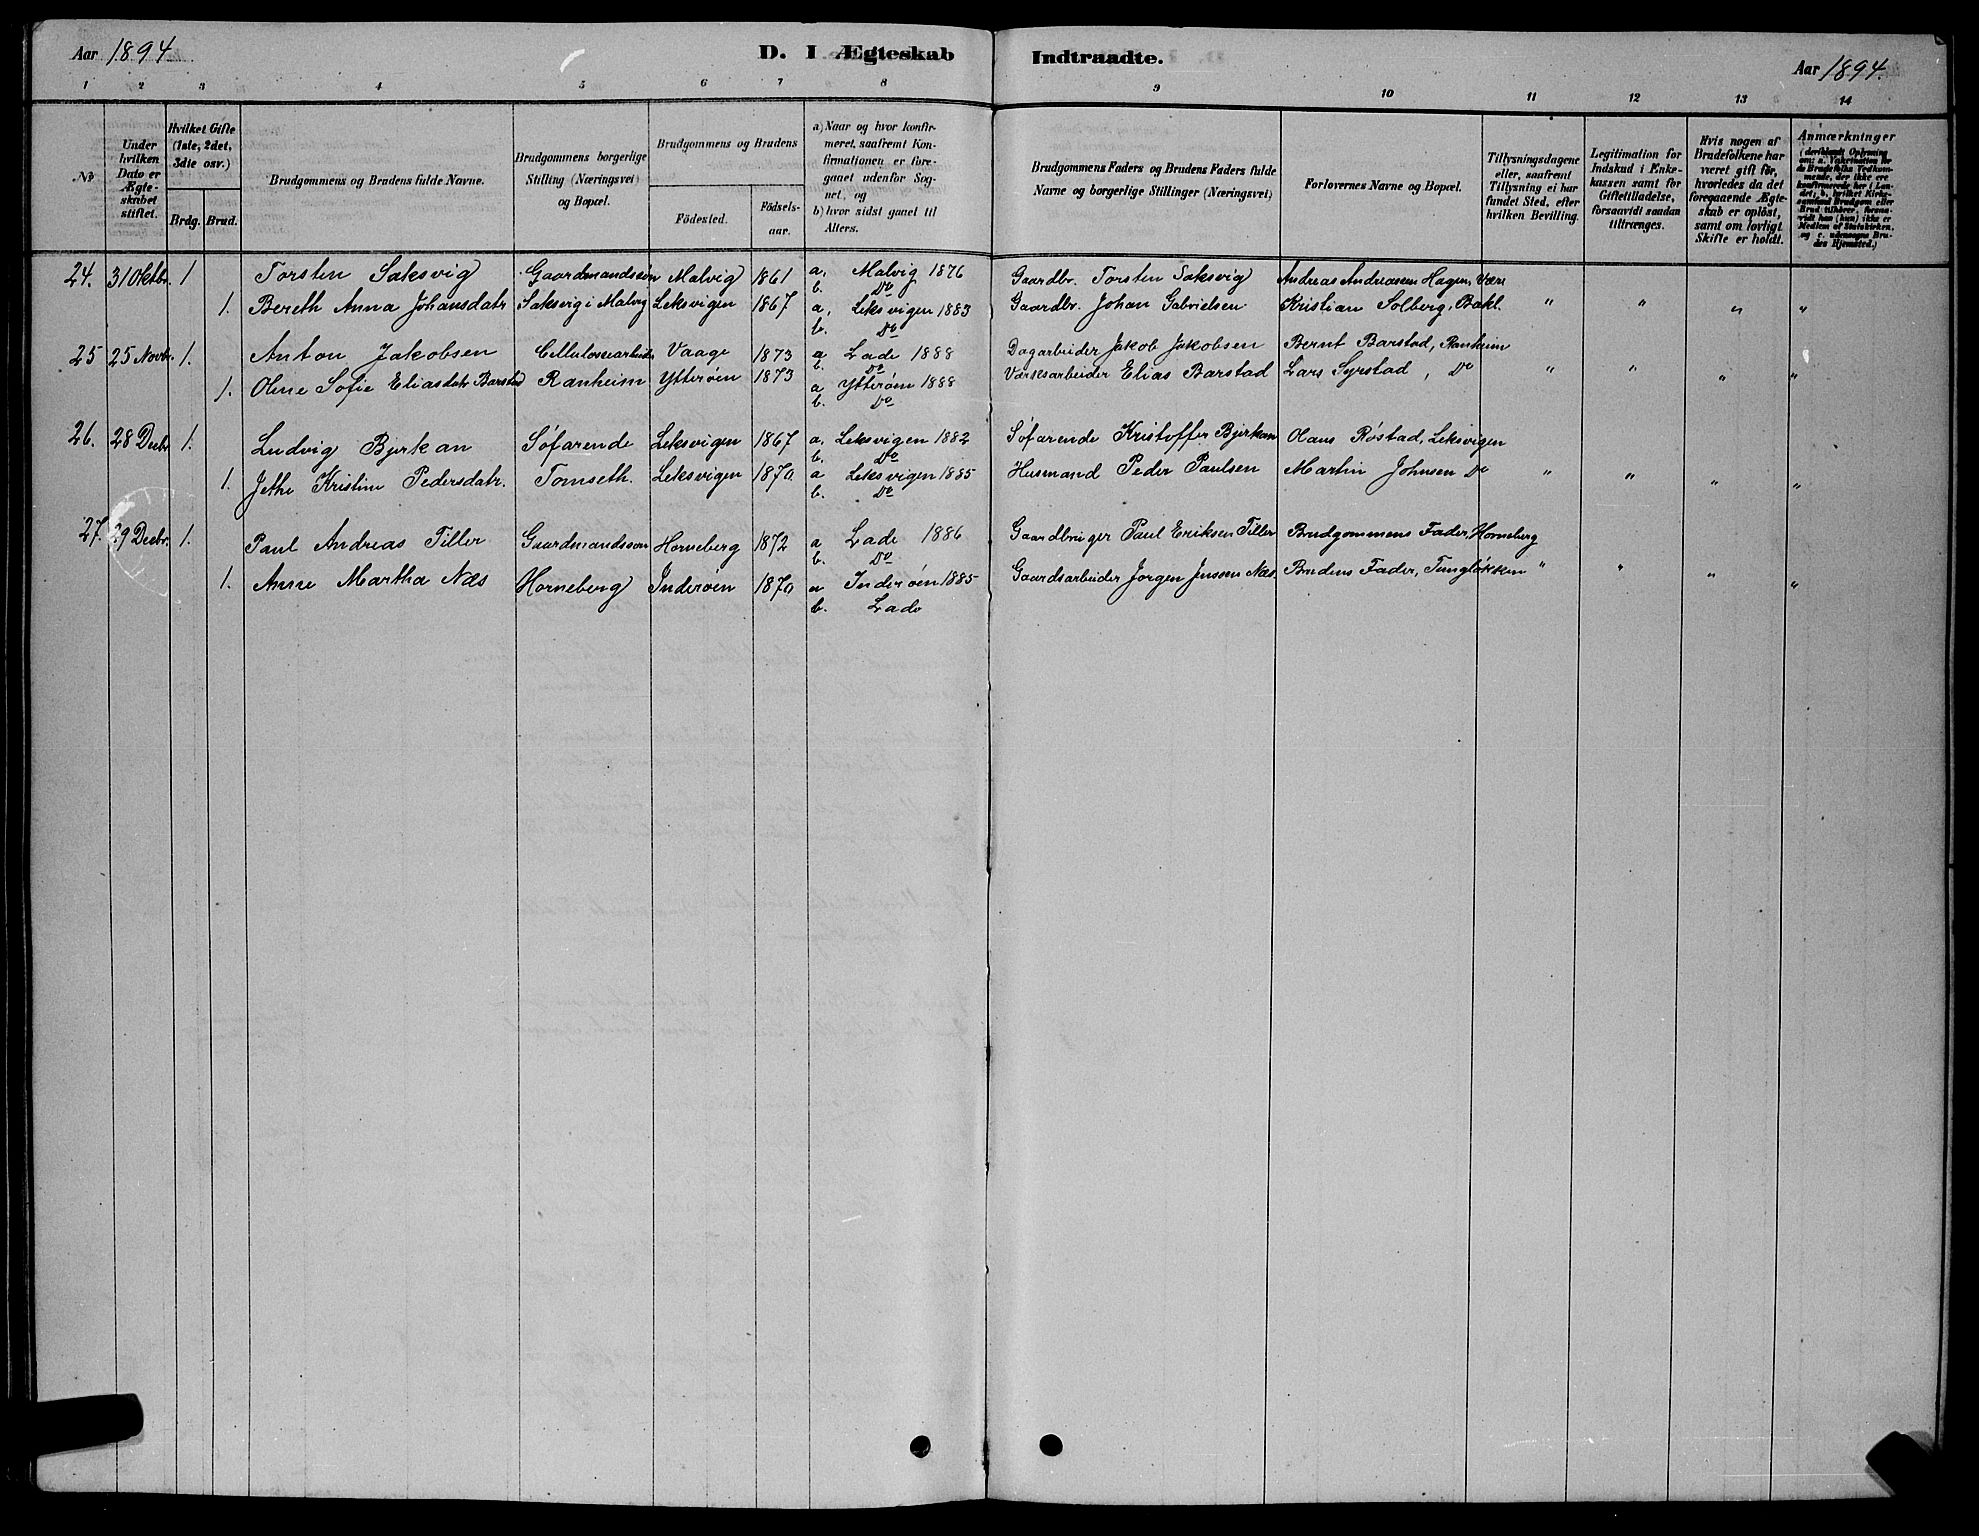 Aar 1894. D. I Ægteskab Indtraadte. Aar 1894.
1 2 3 4 5 6 7 8 9 10 11 12 13 14
No
Under hvilken Dato er Ægteskabet stiftet.
Hvilket Gifte (1ste, 2det, 3die osv.)
Brdg. Brud.
Brudgommens og Brudens fulde Navne.
Brudgommens borgerlige Stilling (Næringsvei) og Bopæl.
Brudgommens og Brudens
Fødested. Fødselsaar.
a) Naar og hvor konfirmeret, saafremt Konfirmationen er foregaaet udenfor Sognet, og
b) hvor sidst gaaet til Alters.
Brudgommens Faders og Brudens Faders fulde Navne og borgerlige Stillinger (Næringsvei)
Forlovernes Navne og Bopæl.
Tillysningsdagene eller, saafremt Tillysning ei har fundet Sted, efter hvilken Bevilling.
Legitimation for Indskud i Enkekassen samt for Giftetilladelse, forsaavidt saadan tiltrænges.
Hvis nogen af Brudefolkene har været gift før, hvorledes da det foregaaende Ægteskab er opløst, samt om lovligt Skifte er holdt.
Anmærkninger (deriblandt Oplysning om: a. Vakcination for de Brudefolks Vedkommende, der ikke ere konfirmerede her i Landet; b. hvilket Kirkesamfund Brudgom eller Brud tilhører, forsaavidt han (hun) ikke er Medlem af Statskirken, og c. udensogns Brudes Hjemsted.)
24. 31 Oktbr. 1 Torsten Saksvig Gaardmandssøn Malvig 1861 a. Malvig 1876 b. Do Gaardbr. Torsten Saksvig Andreas Andreasen Hagen, Være
1. Bereth Anna Johansdatr Saksvig i Malvig Leksvigen 1867 a. Leksvigen 1883 b. Do Gaardbr. Johan Gabrielsen Kristian Solberg, Bakl. " " " "
25 25 Novbr. 1. Anton Jakobsen Cellulosearbeider Vaage 1873 a Lade 1888 b. Do Dagarbeider Jakob Jakobsen Bernt Barstad, Ranheim
1. Oline Sofie Eliasdatr Barstad Ranheim Ytterøen 1873 a Ytterøen 1888 b. Do Værksarbeider Elias Barstad Lars Syrstad, Do " " " "
26. 28 Decbr 1. Ludvig Bjerkan Søfarende Leksvigen 1867 a. Leksvigen 1882 b. Do Søfarende Kristoffer Bjerkan Olaus Røstad, Leksvigen
1. Jethe Kristine Pedersdatr. Tomseth. Leksvigen 1870 a Leksvigen 1885 b. Do Husmand Peder Paulsen Martin Johnsen Do " " " "
27. 29 Decbr. 1. Paul Andreas Tiller Gaardmandssøn Horneberg 1872 a Lade 1886 b. Do Gaardbruger Paul Eriksen Tiller Brudgommens Fader, Horneberg
1. Anne Martha Næs Horneberg Inderøen 1870 a Inderøen 1885 b. Lade Gaardsarbeider Jørgen Jenssen Næs. Brudens Fader, Tungløkken " " " "